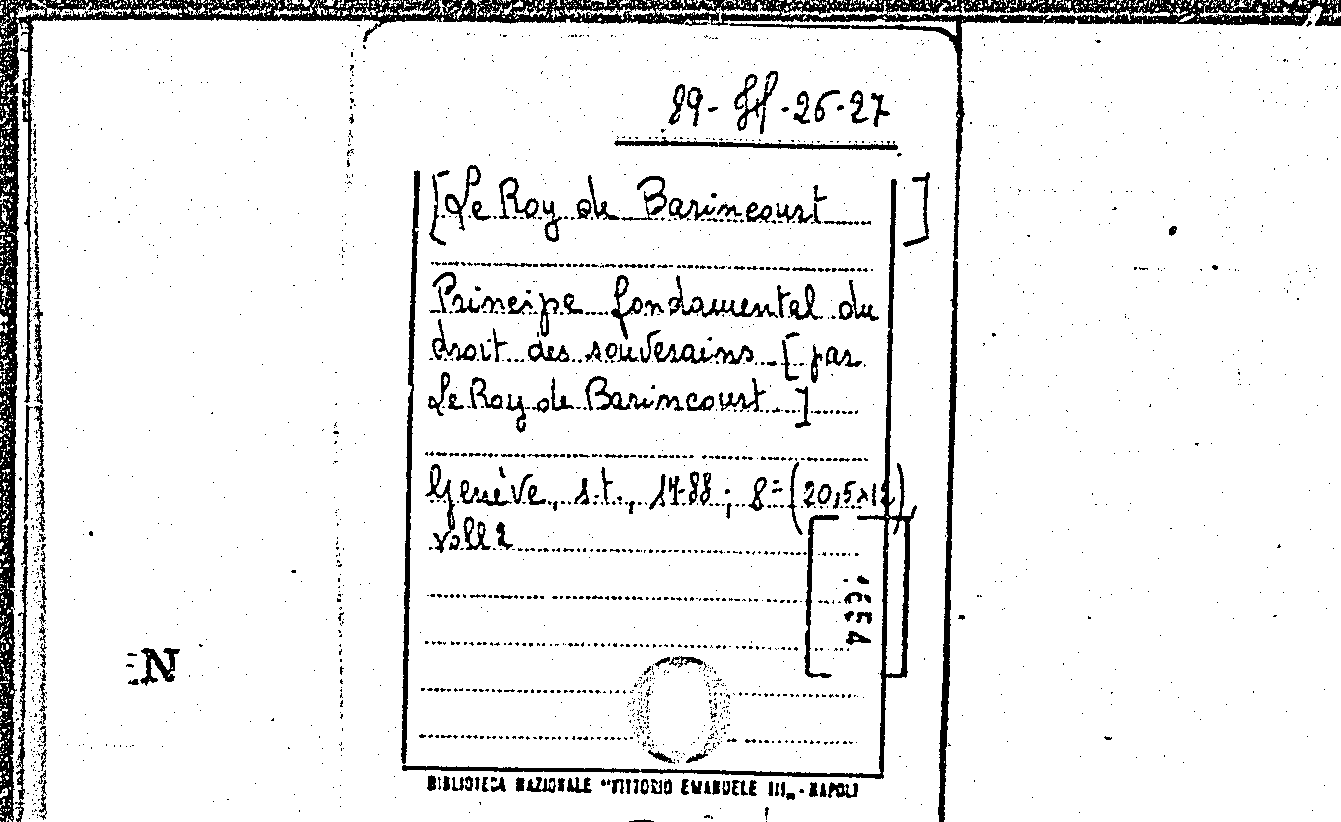 89-
-26-27
[Le Roy de Barincourt]
Principe fondamental du
droit des souverains [par
Le Roy de Barincourt]
Genève, s.t., 1788; 8= (20,5x12)
voll 2
N
BIBLIOTECA NAZIONALE "VITTORIO EMANUELE III„ - NAPOLI